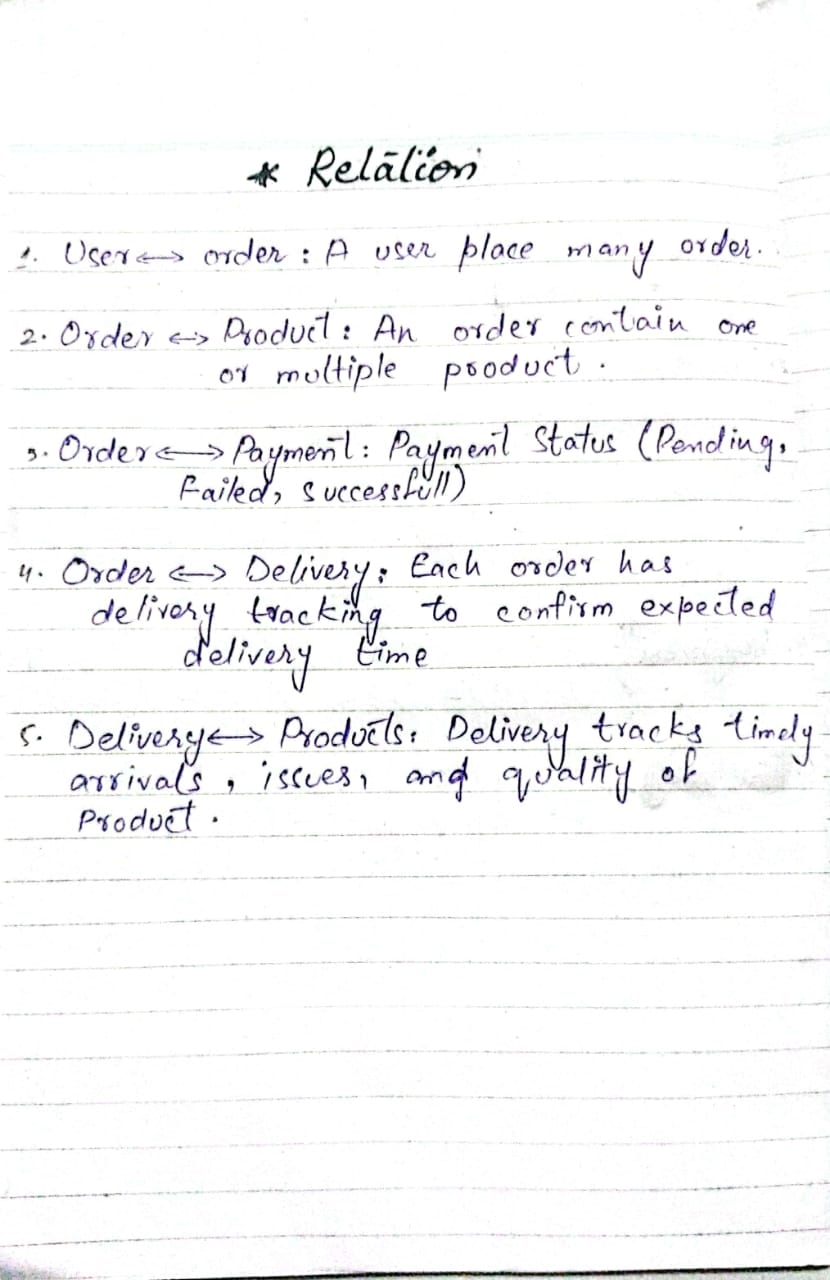 * Relation
1. User ↔ order : A user place many order.
2. Order ↔ Product : An order contain one
or multiple product .
3. Order ↔ Payment : Payment Status (Pending,
Failed, successfull)
4. Order ↔ Delivery : Each order has
delivery tracking to confirm expected
delivery time
5. Delivery ↔ Products : Delivery tracks timely
arrivals , issues, and quality of
Product .